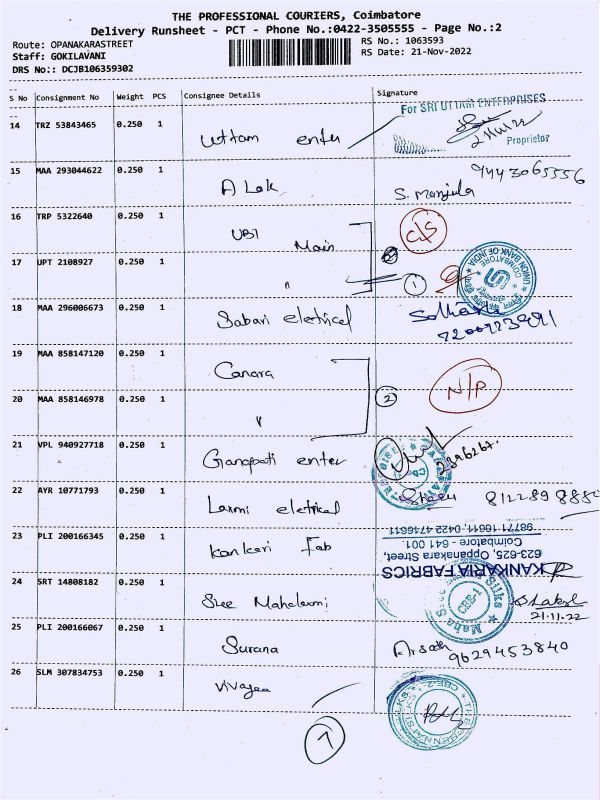 THE PROFESSIONAL COURIERS, Coimbatore
Delivery Runsheet - PCT - Phone No.:0422-3505555 - Page No.:2
Route: OPANAKARASTREET
RS No.: 1063593
Staff: GOKILAVANI
RS Date: 21-Nov-2022
DRS No.: DCJB106359302
S No Consignment No Weight PCS Consignee Details Signature
For SRI UTTAM ENTERPRISES
14 TRZ 53843465 0.250 1 Uttam enter
Proprietor
15 MAA 293044622 0.250 1 A Lak S. Manjula 9443065556
16 TRP 5322640 0.250 1 UBI Main C/S
17 UPT 2108927 0.250 1 " 1
UNION BANK OF INDIA COIMBATORE
18 MAA 296006673 0.250 1 Sabari eletrical
19 MAA 858147120 0.250 1 Canara N/P
20 MAA 858146978 0.250 1 " 2
21 VPL 940927718 0.250 1 Ganapati enter
22 AYR 10771793 0.250 1 Laxmi eletrical
23 PLI 200166345 0.250 1 Kankari Fab
KANKARIA FABRICS
623-625, Oppanakara Street,
Coimbatore - 641 001.
98771 16611, 0422 4716611
24 SRT 14808182 0.250 1 Sree Mahalaxmi
21.11.22
25 PLI 200166067 0.250 1 Surana Arsath 9629453840
26 SLM 307834753 0.250 1
7